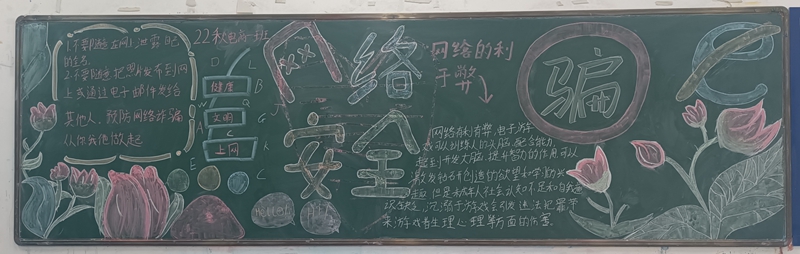 1.不要随意在网上泄露自己
的姓名
2.不要随意把照片发布到网
上或通过电子邮件发给
其他人,预防网络诈骗
从你我他做起
22秋电商一班
健康
文明
上网
网络
安全
网络的利
于弊
骗
e
网络有利有弊,电子游
戏可以训练人的大脑,配合能力,
起到开发大脑,提升智力的作用可以
激发创造的欲望和学习的兴
趣,但是
沉溺于游戏会引发违法犯罪带
来游戏者生理心理等方面的伤害.